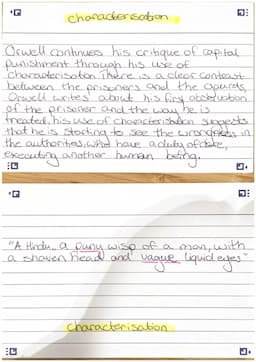 characterisation
Orwell continues his critique of capital
punishment through his use of
characterisation. There is a clear contrast
between the prisoners and the guards,
Orwell writes about his first observation
of the prisoner and the way he is
treated, his use of characterisation suggests
that he is starting to see the wrongness in
the authorities, who have a duty of care,
executing another human being.
"A Hindu, a puny wisp of a man, with
a shaven head and vague liquid eyes"
characterisation